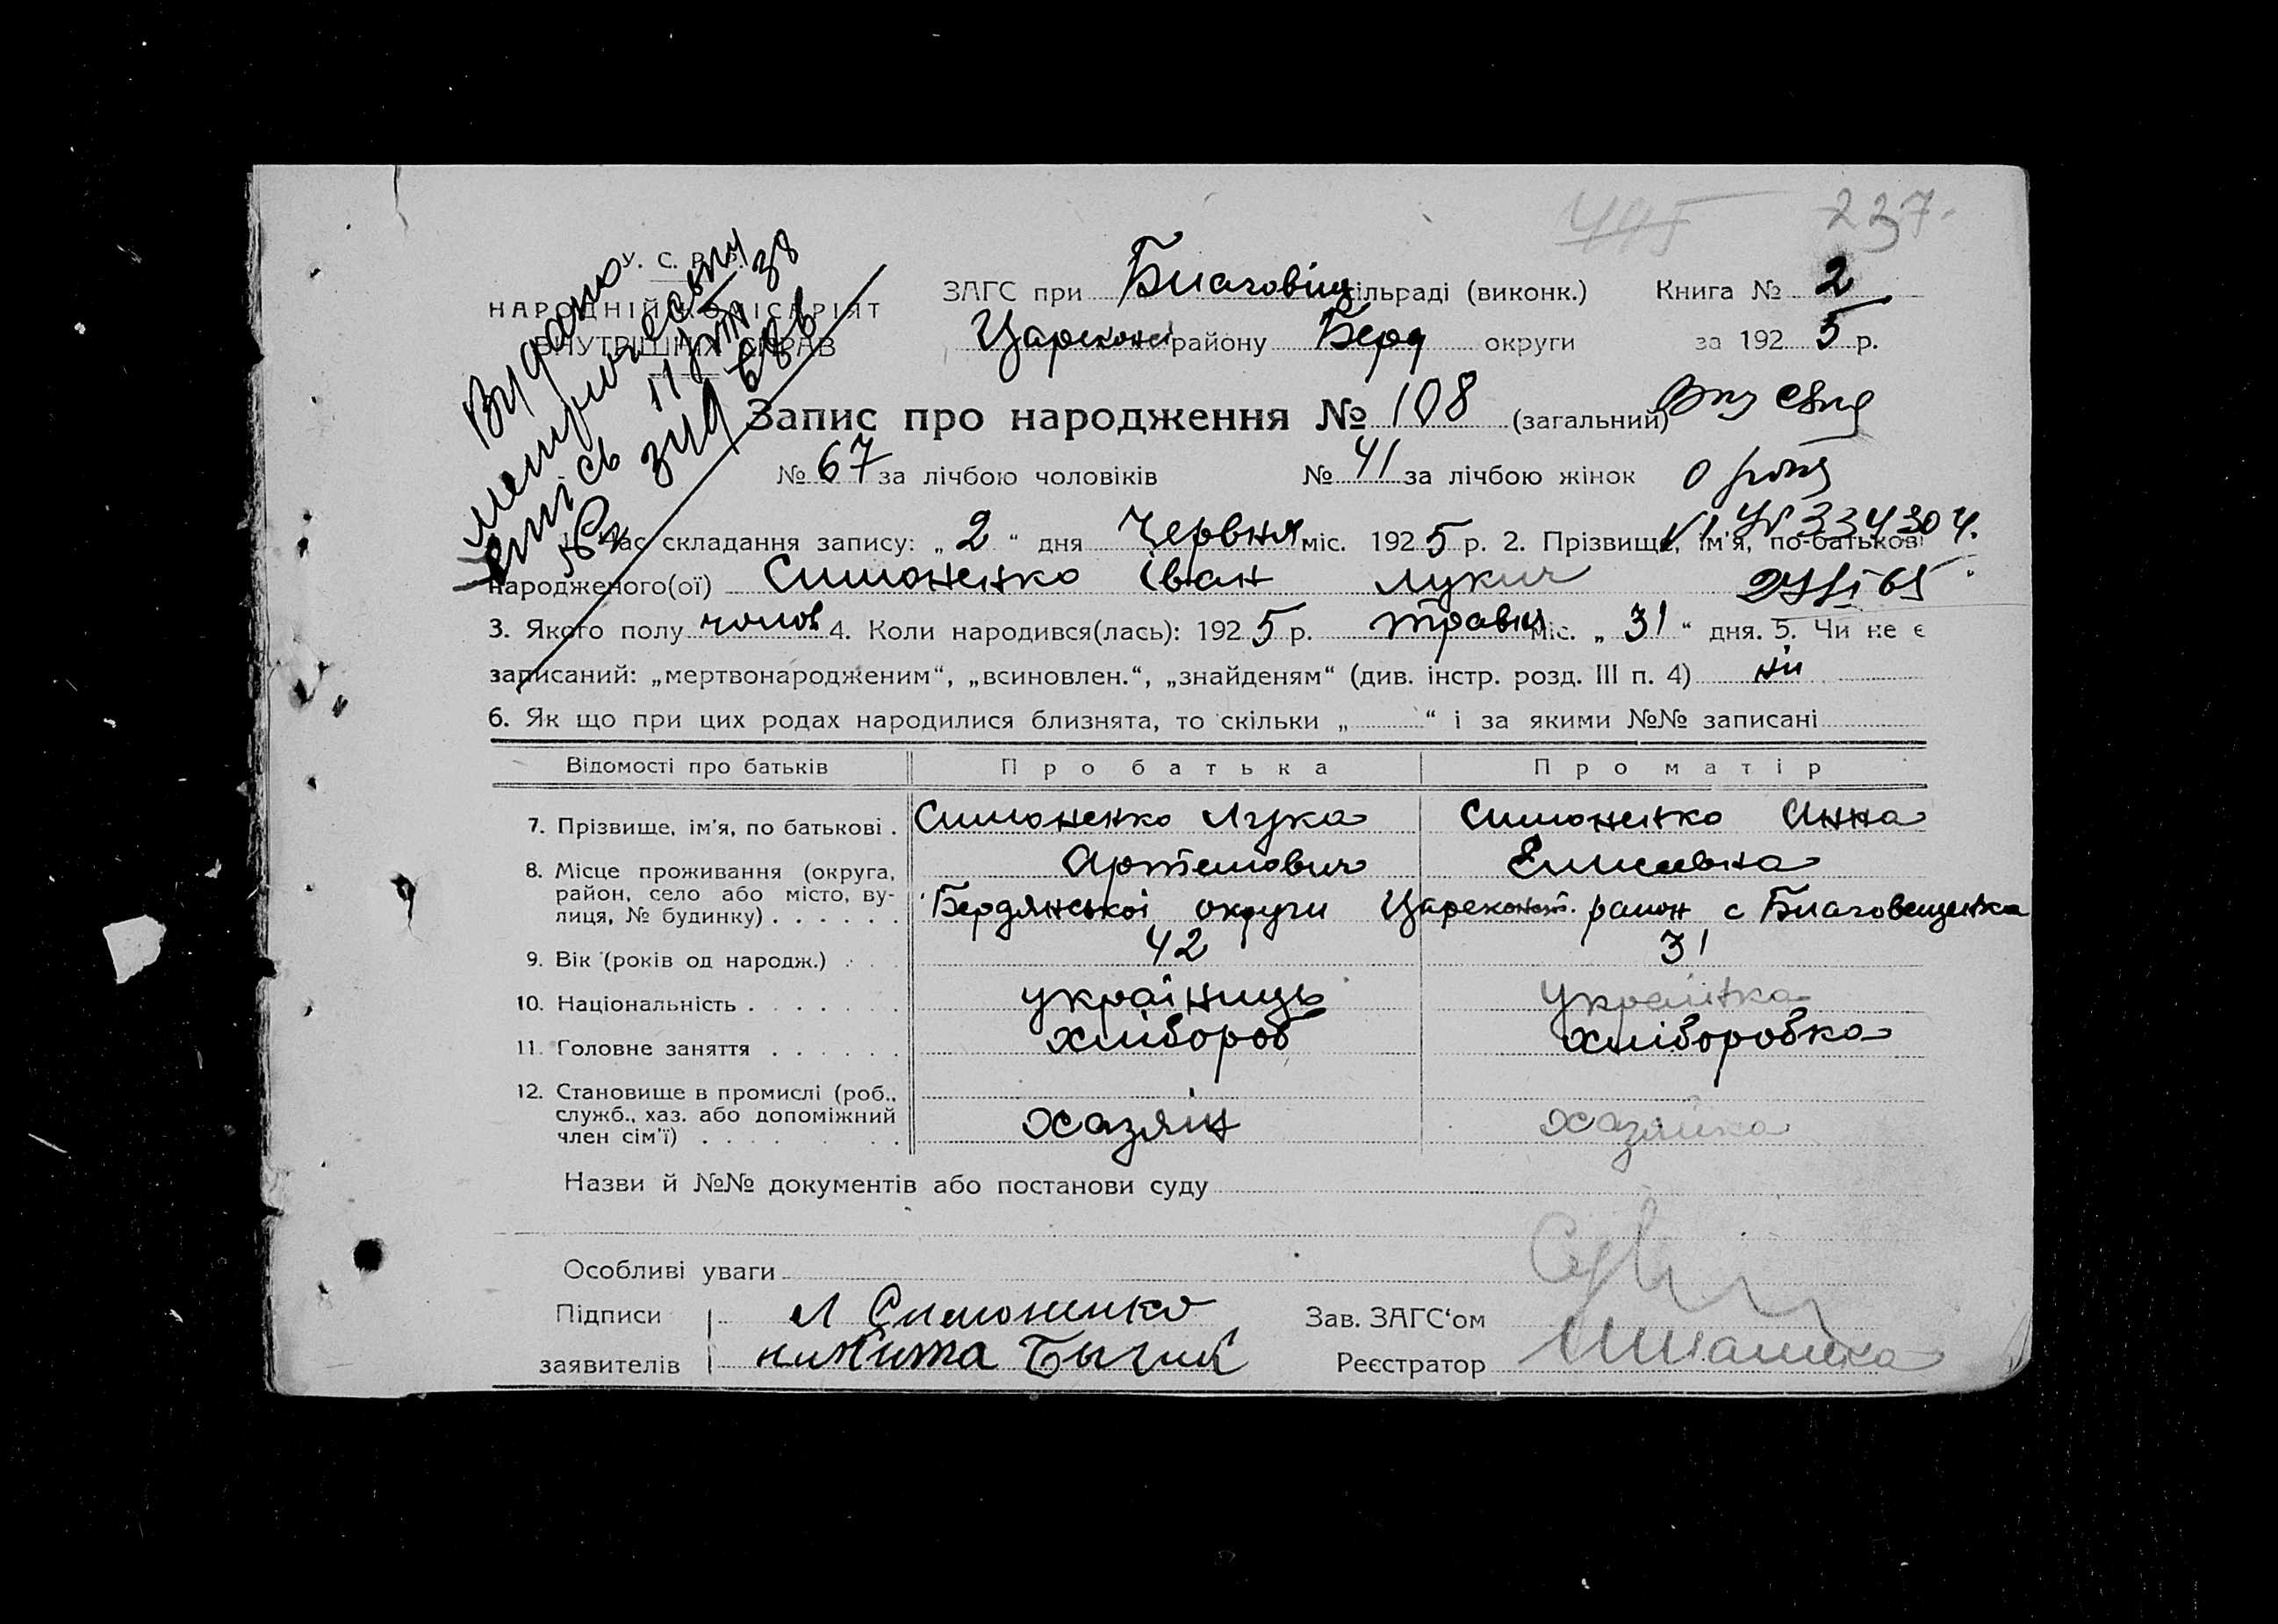 495 237.
У. С. Р. Р.
НАРОДНІЙ КОМІСАРІЯТ
ВНУТРІШНІХ СПРАВ
Видано
ЗАГС при Благовіщ сільраді (виконк.) Книга № 2
Царекон району Берд округи за 1925 р.
Запис про народження № 108 (загальний)
№ 67 за лічбою чоловіків № 41 за лічбою жінок
334304.
1. Час складання запису: „2“ дня Червня міс. 1925 р. 2. Прізвище, ім'я, по-батькові
народженого(ої) Симоненко Іван Лукич
3. Якого полу чолов 4. Коли народився(лась): 1925 р. травня міс. „31“ дня. 5. Чи не є
записаний: „мертвонародженим“, „всиновлен.“, „знайденям“ (див. інстр. розд. III п. 4) ні
6. Як що при цих родах народилися близнята, то скільки „ “ і за якими №№ записані
Відомості про батьків Про батька Про матір
7. Прізвище, ім'я, по батькові . Симоненко Лука Симоненко Анна
Артемович Елисеевна
8. Місце проживання (округа,
район, село або місто, ву-
лиця, № будинку) . . . . . . Бердянської округи Царекон. район с Благовещенка
9. Вік (років од народж.) 42 31
10. Національність . . . . . . . українець Українка
11. Головне заняття . . . . . . хлібороб хліборобка
12. Становище в промислі (роб.,
служб., хаз. або допоміжний
член сім'ї) . . . . . . . . хазяїн хазяйка
Назви й №№ документів або постанови суду
Особливі уваги
Підписи Л Симоненко Зав. ЗАГС'ом
заявителів никита Реєстратор